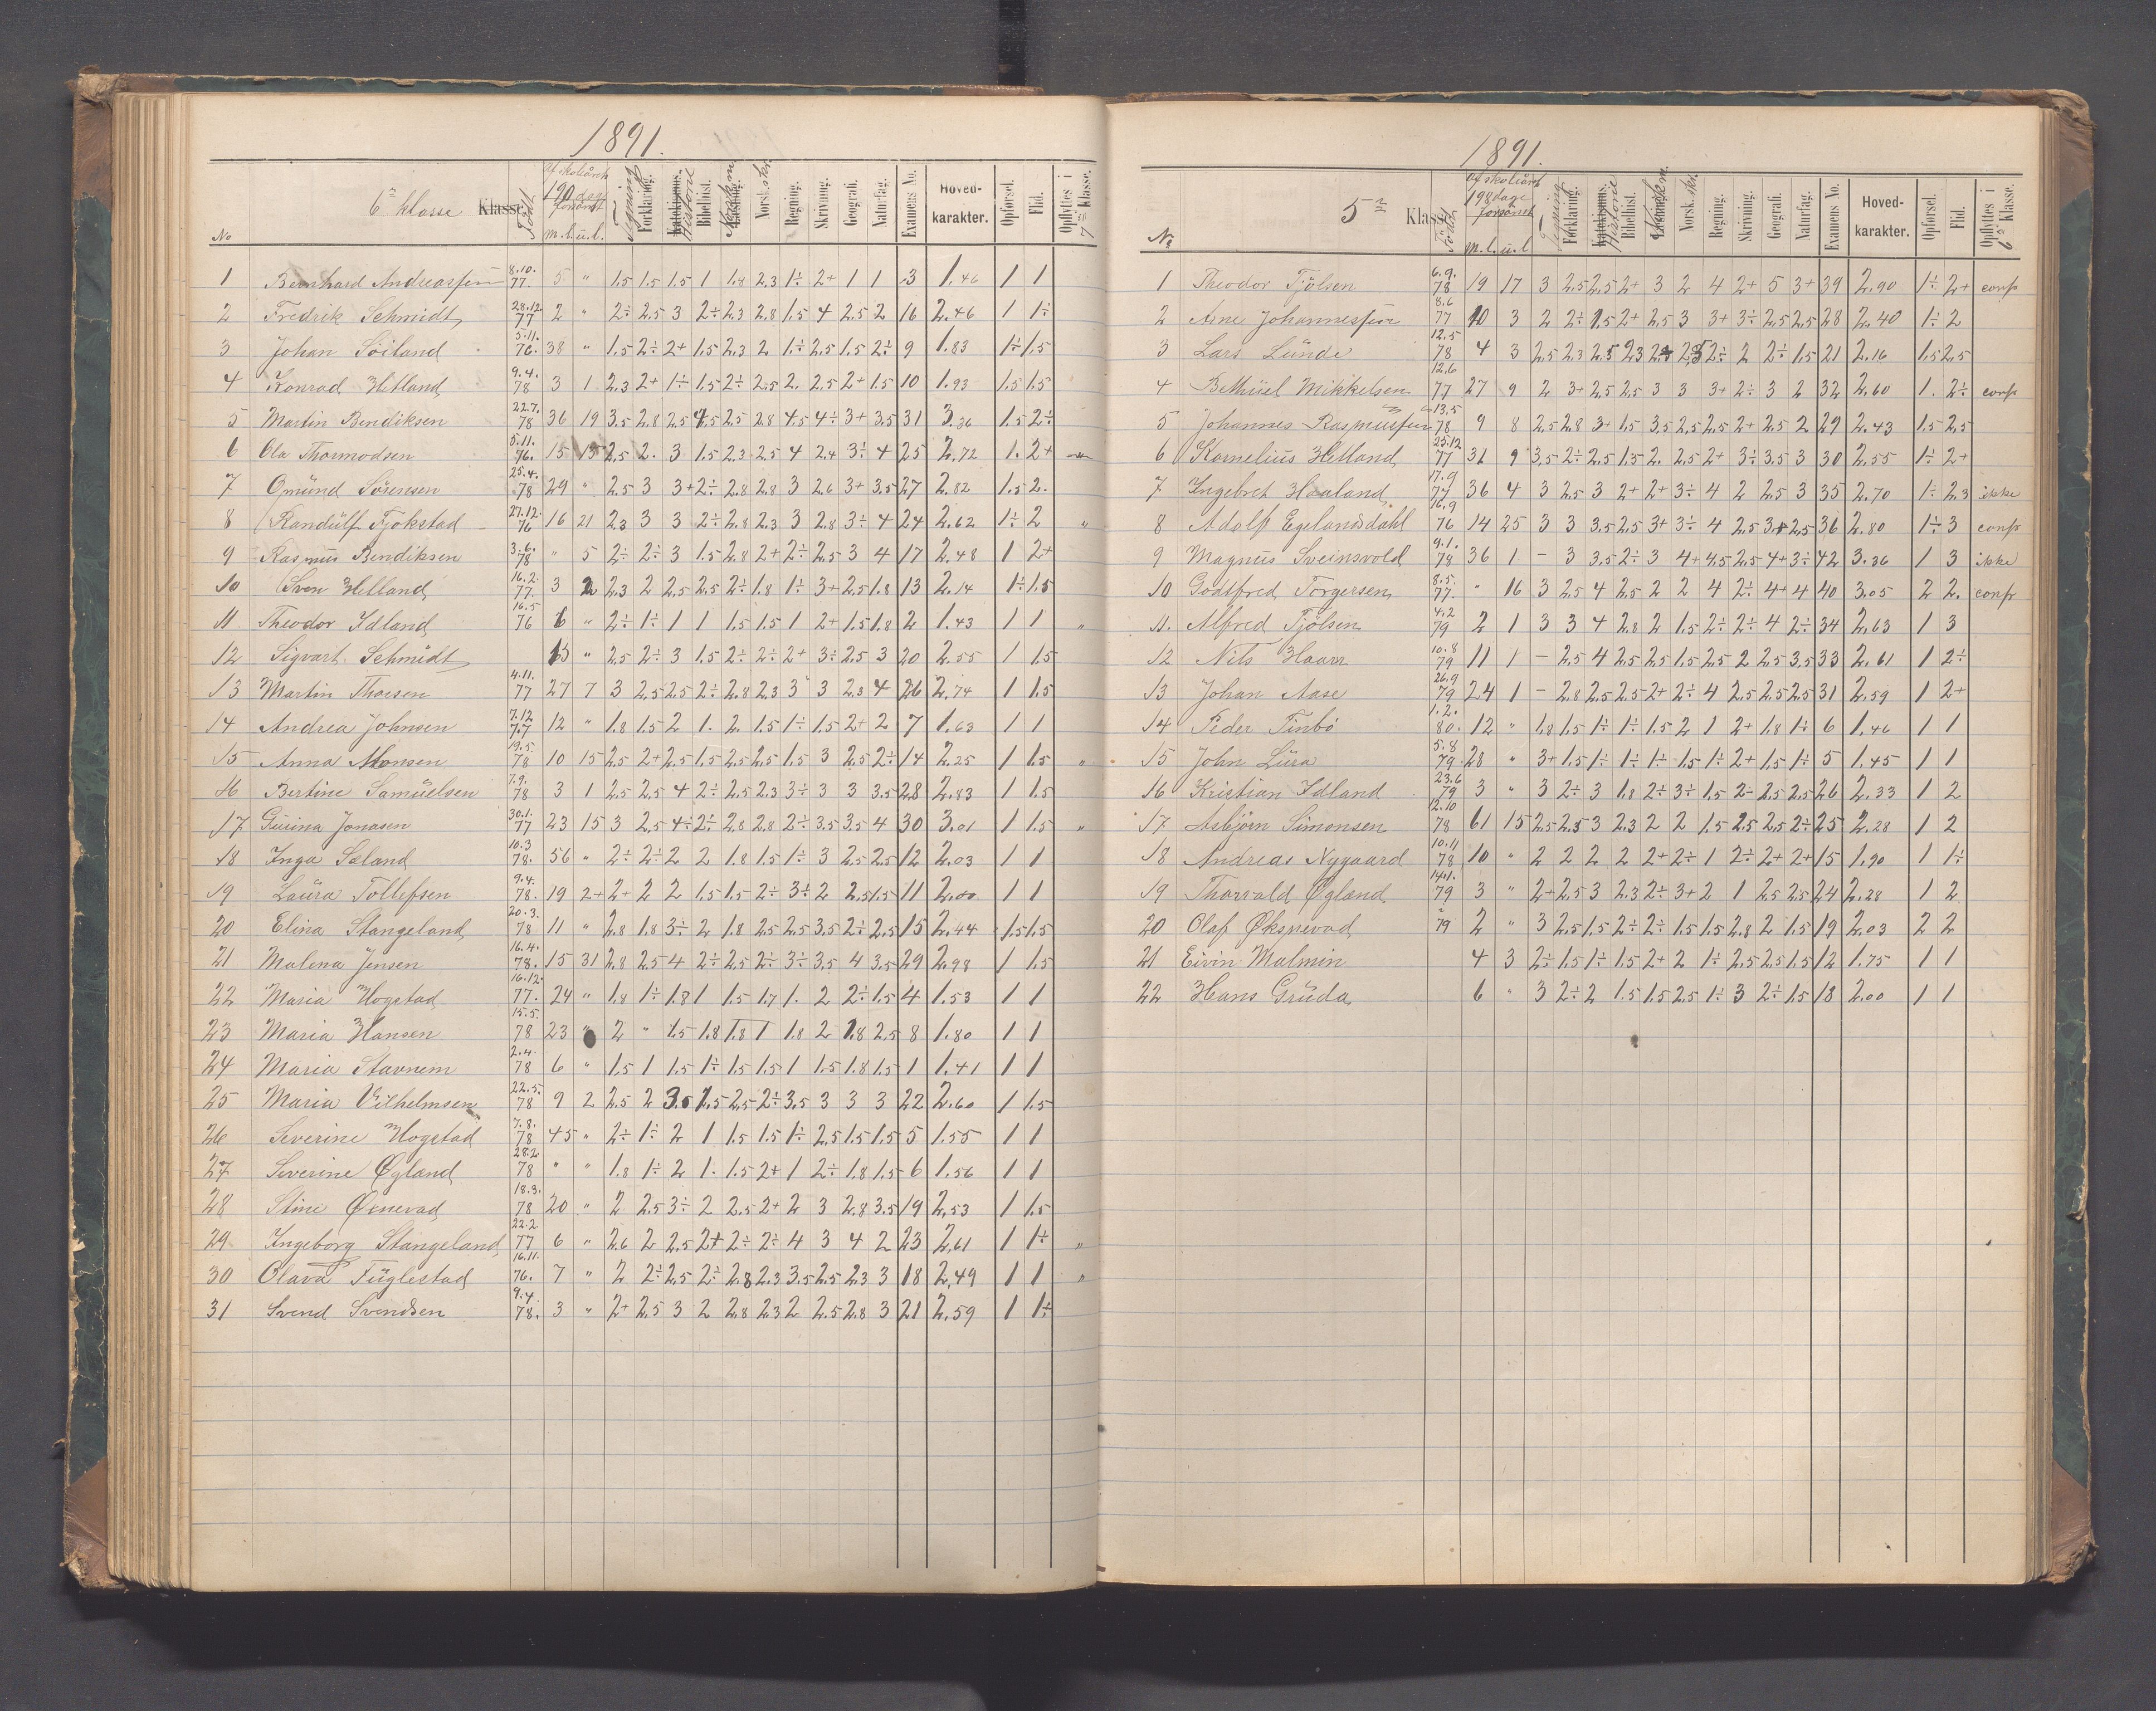 1891.
6te klasse Klasse.
No
Født
Af skoleåret
190 dage
forsømt
m.l. u.l.
Tegning
Forklaring.
Katekismus.
Historie
Bibelhist.
Norsk m.
Norsk skr.
Regning.
Skrivning.
Geografi.
Naturfag.
Examens No.
Hoved-karakter.
Opførsel.
Flid.
Opflyttes i 7de Klasse.
1 Bernhard Andreassen 8.10. 77. 5 " 1.5 1.5 1.5 1 1.8 2.3 1÷ 2+ 1 1 3 1.46 1 1
2 Fredrik Schmidt 28.12. 77 2 " 2÷ 2.5 3 2÷ 2.3 2.8 1.5 4 2.5 2 16 2.46 1 1÷
3 Johan Søiland 5.11. 76. 38 " 1.5 2÷ 2+ 1.5 2.3 2 1÷ 2.5 1.5 2÷ 9 1.83 1÷ 1.5
4 Konrad Hetland 9.4. 78 3 1 2.3 2+ 1÷ 1.5 2÷ 2.5 2. 2.5 2+ 1.5 10 1.93 1.5 1.5
5 Martin Bendiksen 22.7. 78 36 19 3.5 2.8 2.5 4.5 2.5 2.8 4.5 4÷ 3+ 3.5 31 3.36 1.5 2÷
6 Ola Thormodsen 5.11. 76. 15 15 2.5 2. 3 1.5 2.3 2.5 4 2.4 3÷ 4 25 2.72 1. 2+
7 Omünd Sørensen 25.4. 78 29 " 2.5 3 3+ 2÷ 2.8 2.8 3 2.6 3+ 3.5 27 2.82 1.5 2.
8 Randülf Tjøkstad 27.12. 76 16 21 2.3 3 3 2÷ 2.8 2.3 3 2.8 3÷ 4 24 2.62 1÷ 2 "
9 Rasmüs Bendiksen 3.6. 78 " 5 2÷ 2÷ 3 1.5 2.8 2+ 2÷ 2.5 3 4 17 2.48 1 2+
10 Sven Helland 16.2. 77. 3 2 2.3 2 2.5 2.5 2÷ 1.8 1÷ 3+ 2.5 1.8 13 2.14 1÷ 1.5
11. Theodor Idland 16.5 76 6 " 2÷ 1÷ 1 1 1.5 1.5 1 2+ 1.5 1.8 2 1.43 1 1 "
12 Sigvart Schmidt 13 " 2.5 2÷ 3 1.5 2÷ 2÷ 2+ 3÷ 2.5 3 20 2.55 1 1.5
13 Martin Thorsen 4.11. 77 27 7 3 2.5 2.5 2÷ 2.8 2.3 3 3 2.3 4 26 2.74 1 1.5
14 Andrea Johnsen 7.12 77 12 " 1.8 1.5 2 1. 2. 1.5 1÷ 1.5 2+ 2 7 1.63 1 1
15 Anna Monsen 19.5. 78 10 15 2.5 2+ 2.5 1.5 2.5 2.5 1.5 3 2.5 2÷ 14 2.25 1 1.5 "
16 Bertine Samüelsen 7.9. 78 3 1 2.5 2.5 4 2÷ 2.5 2.3 3÷ 3 3 3.5 28 2.83 1 1.5
17 Gurina Jonasen 30.1. 77 23 15 3 2.5 4÷ 2÷ 2.8 2.8 2÷ 3.5 3.5 4 30 3.01 1 1.5 "
18 Inga Søland 10.3 78. 56 " 2÷ 2÷ 2 2 1.8 1.5 1÷ 3 2.5 2.5 12 2.03 1 1
19 Laüra Tollefsen 9.4. 78. 19 2+ 2+ 2 2 1.5 1.5 2÷ 3÷ 2 2.5 1.5 11 2.00 1 1
20 Elina Stangeland 20.3. 78 11 " 2.8 1.8 3÷ 2 1.8 2.5 2.5 3.5 2÷ 2.5 15 2.44 1.5 1.5
21 Malena Jensen 16.4. 78. 15 31 2.8 2.5 4 2÷ 2.5 2÷ 3÷ 3.5 4 3.5 29 2.98 1 1.5
22 Maria Hogstad 16.12. 77. 24 " 1.8 1÷ 1.8 1 1.5 1.7 1. 2 2÷ 1.5 4 1.53 1 1
23 Maria Hansen 15.5. 78 23 " 2 " 1.5 1.8 1.8 1 1.8 2 1.8 2.5 8 1.80 1 1
24 Maria Stavnem 2.4. 78 6 " 1.5 1 1.5 1÷ 1.5 1.5 1 1.5 1.8 1.5 1 1.41 1 1
25 Maria Vilhelmsen 22.5. 78 9 2 2.5 2 3.5 1.5 2.5 2÷ 3.5 3 3 3 22 2.60 1 1.5
26 Severine Hogstad 7.8. 78 45 " 2÷ 1÷ 2 1 1.5 1.5 1÷ 2.5 1.5 1.5 5 1.55 1 1
27 Severine Øgland 28.2 78 " " 1.8 1÷ 2 1. 1.5 2+ 1 2÷ 1.8 1.5 6 1.56 1 1
28 Stine Øxnevad 18.3. 78 20 " 2 2.5 3÷ 2 2.5 2+ 2 3 2.8 3.5 19 2.53 1 1.5
29 Ingeborg Stangeland 22.2 77 6 " 2.6 2 2.5 2+ 2÷ 2÷ 4 3 4 2 23 2.61 1 1÷ "
30 Olava Füglestad 16.11. 76. 7 " 2 2÷ 2.5 2÷ 2.8 2.3 3.5 2.5 2.3 3 18 2.49 1 1 "
31 Svend Svendsen 9.4. 78. 3 " 2+ 2.5 3 2 2.8 2.3 2 2.5 2.8 3 21 2.59 1 1÷
1891.
5te Klasse.
No
Født
Af skoleåret
198 dage
forsømt
m.l. u.l
Tegning
Forklaring.
Katekismus.
Historie
Bibelhist.
Norsk m.
Norsk skr.
Regning.
Skrivning.
Geografi.
Naturfag.
Examens No.
Hoved-karakter.
Opførsel.
Flid.
Opflyttes i 6te Klasse.
1 Theodor Tjølsen 6.9. 78 19 17 3 2.5 2.5 2+ 3 2 4 2+ 5 3+ 39 2.90 1÷ 2+ conf
2 Arne Johannessen 8.6 77 10 3 2 2÷ 1.5 2+ 2.5 3 3+ 3÷ 2.5 2.5 28 2.40 1÷ 2
3 Lars Lünde 12.5 78 4 3 2.5 2.3 2.5 2.3 2.5 2÷ 2 2÷ 1.5 21 2.16 1.5 2.5
4 Bethüel Mikkelsen 12.6 77 27 9 2 3+ 2.5 2.5 3 3 3+ 2÷ 3 2 32 2.60 1. 2÷ conf
5 Johannes Rasmüssen 13.5 78 9 8 2.5 2.8 3+ 1.5 3.5 2.5 2.5 2+ 2.5 2 29 2.43 1.5 2.5
6 Kornelius Helland 25.12 77 31 9 3.5 2÷ 2.5 1.5 2. 2.5 2+ 3÷ 3.5 3 30 2.55 1÷ 2+
7 Ingebret Haaland 17.9 77 36 4 3 2.5 3 2+ 2+ 3÷ 4 2 2.5 3 35 2.70 1÷ 2.3 ikke
8 Adolf Egelandsdahl 16.9 76 14 25 3 3 3.5 2.5 3+ 3÷ 4 2.5 3.8 2.5 36 2.80 1÷ 3 conf
9 Magnüs Sveinsvold 9.1. 78 36 1 - 3 3.5 2÷ 3 4+ 4.5 2.5 4+ 3÷ 42 3.36 1 3 ikke
10 Godtfred Torgersen 8.5. 77. " 16 3 2.5 4 2.5 2 2 4 2÷ 4+ 4 40 3.05 2 2. conf
11. Alfred Tjølsen 4.2 79 2 1 3 3 4 2.8 2 1.5 2÷ 2÷ 4 2÷ 34 2.63 1 3
12 Nils Haarr 10.8 79 11 1 - 2.5 4 2.5 2.5 1.5 2.5 2 2.5 3.5 33 2.61 1 2÷
13 Johan Aase 26.9 79 24 1 - 2.8 2.5 2.5 2+ 2÷ 4 2.5 2.5 2.5 31 2.59 1 2+
14 Peder Tinbø 1.2. 80. 12 " 1.8 1.5 1÷ 1÷ 1.5 2 1 2+ 1.8 1÷ 6 1.46 1 1
15 John Lüra 5.8 79 28 " 3+ 1.5 1÷ 1÷ 1÷ 1.5 1÷ 2+ 1.5 1÷ 5 1.45 1 1
16 Kristian Idland 23.6 79 3 " 3 2÷ 3 1.8 2÷ 3÷ 1.5 2÷ 2.5 2.5 26 2.33 1 2
17 Asbjørn Simonsen 12.10 78 61 15 2.5 2.5 3 2.3 2 2 1.5 2.5 2.5 2÷ 25 2.28 1 2
18 Andreas Nygaard 10.11 78 10 " 2 2 2 2 2+ 2÷ 1 2÷ 2+ 2+ 15 1.90 1 1÷
19 Thorvald Øgland 14.1. 79 3 " 2+ 2.5 3 2.3 2÷ 3+ 2 1 2.5 2.5 24 2.28 1 2
20 Olaf Øksnevad 79 2 " 3 2.5 1.5 2÷ 2÷ 1.5 1.5 2.8 2 1.5 19 2.03 2 2
21 Eivin Malmin 4 3 2÷ 1.5 1÷ 1.5 2+ 2 1÷ 2.5 2.5 1.5 12 1.75 1 1
22 Hans Grüda 6 " 3 2÷ 2 1.5 1.5 2.5 1÷ 3 2÷ 1.5 18 2.00 1 1